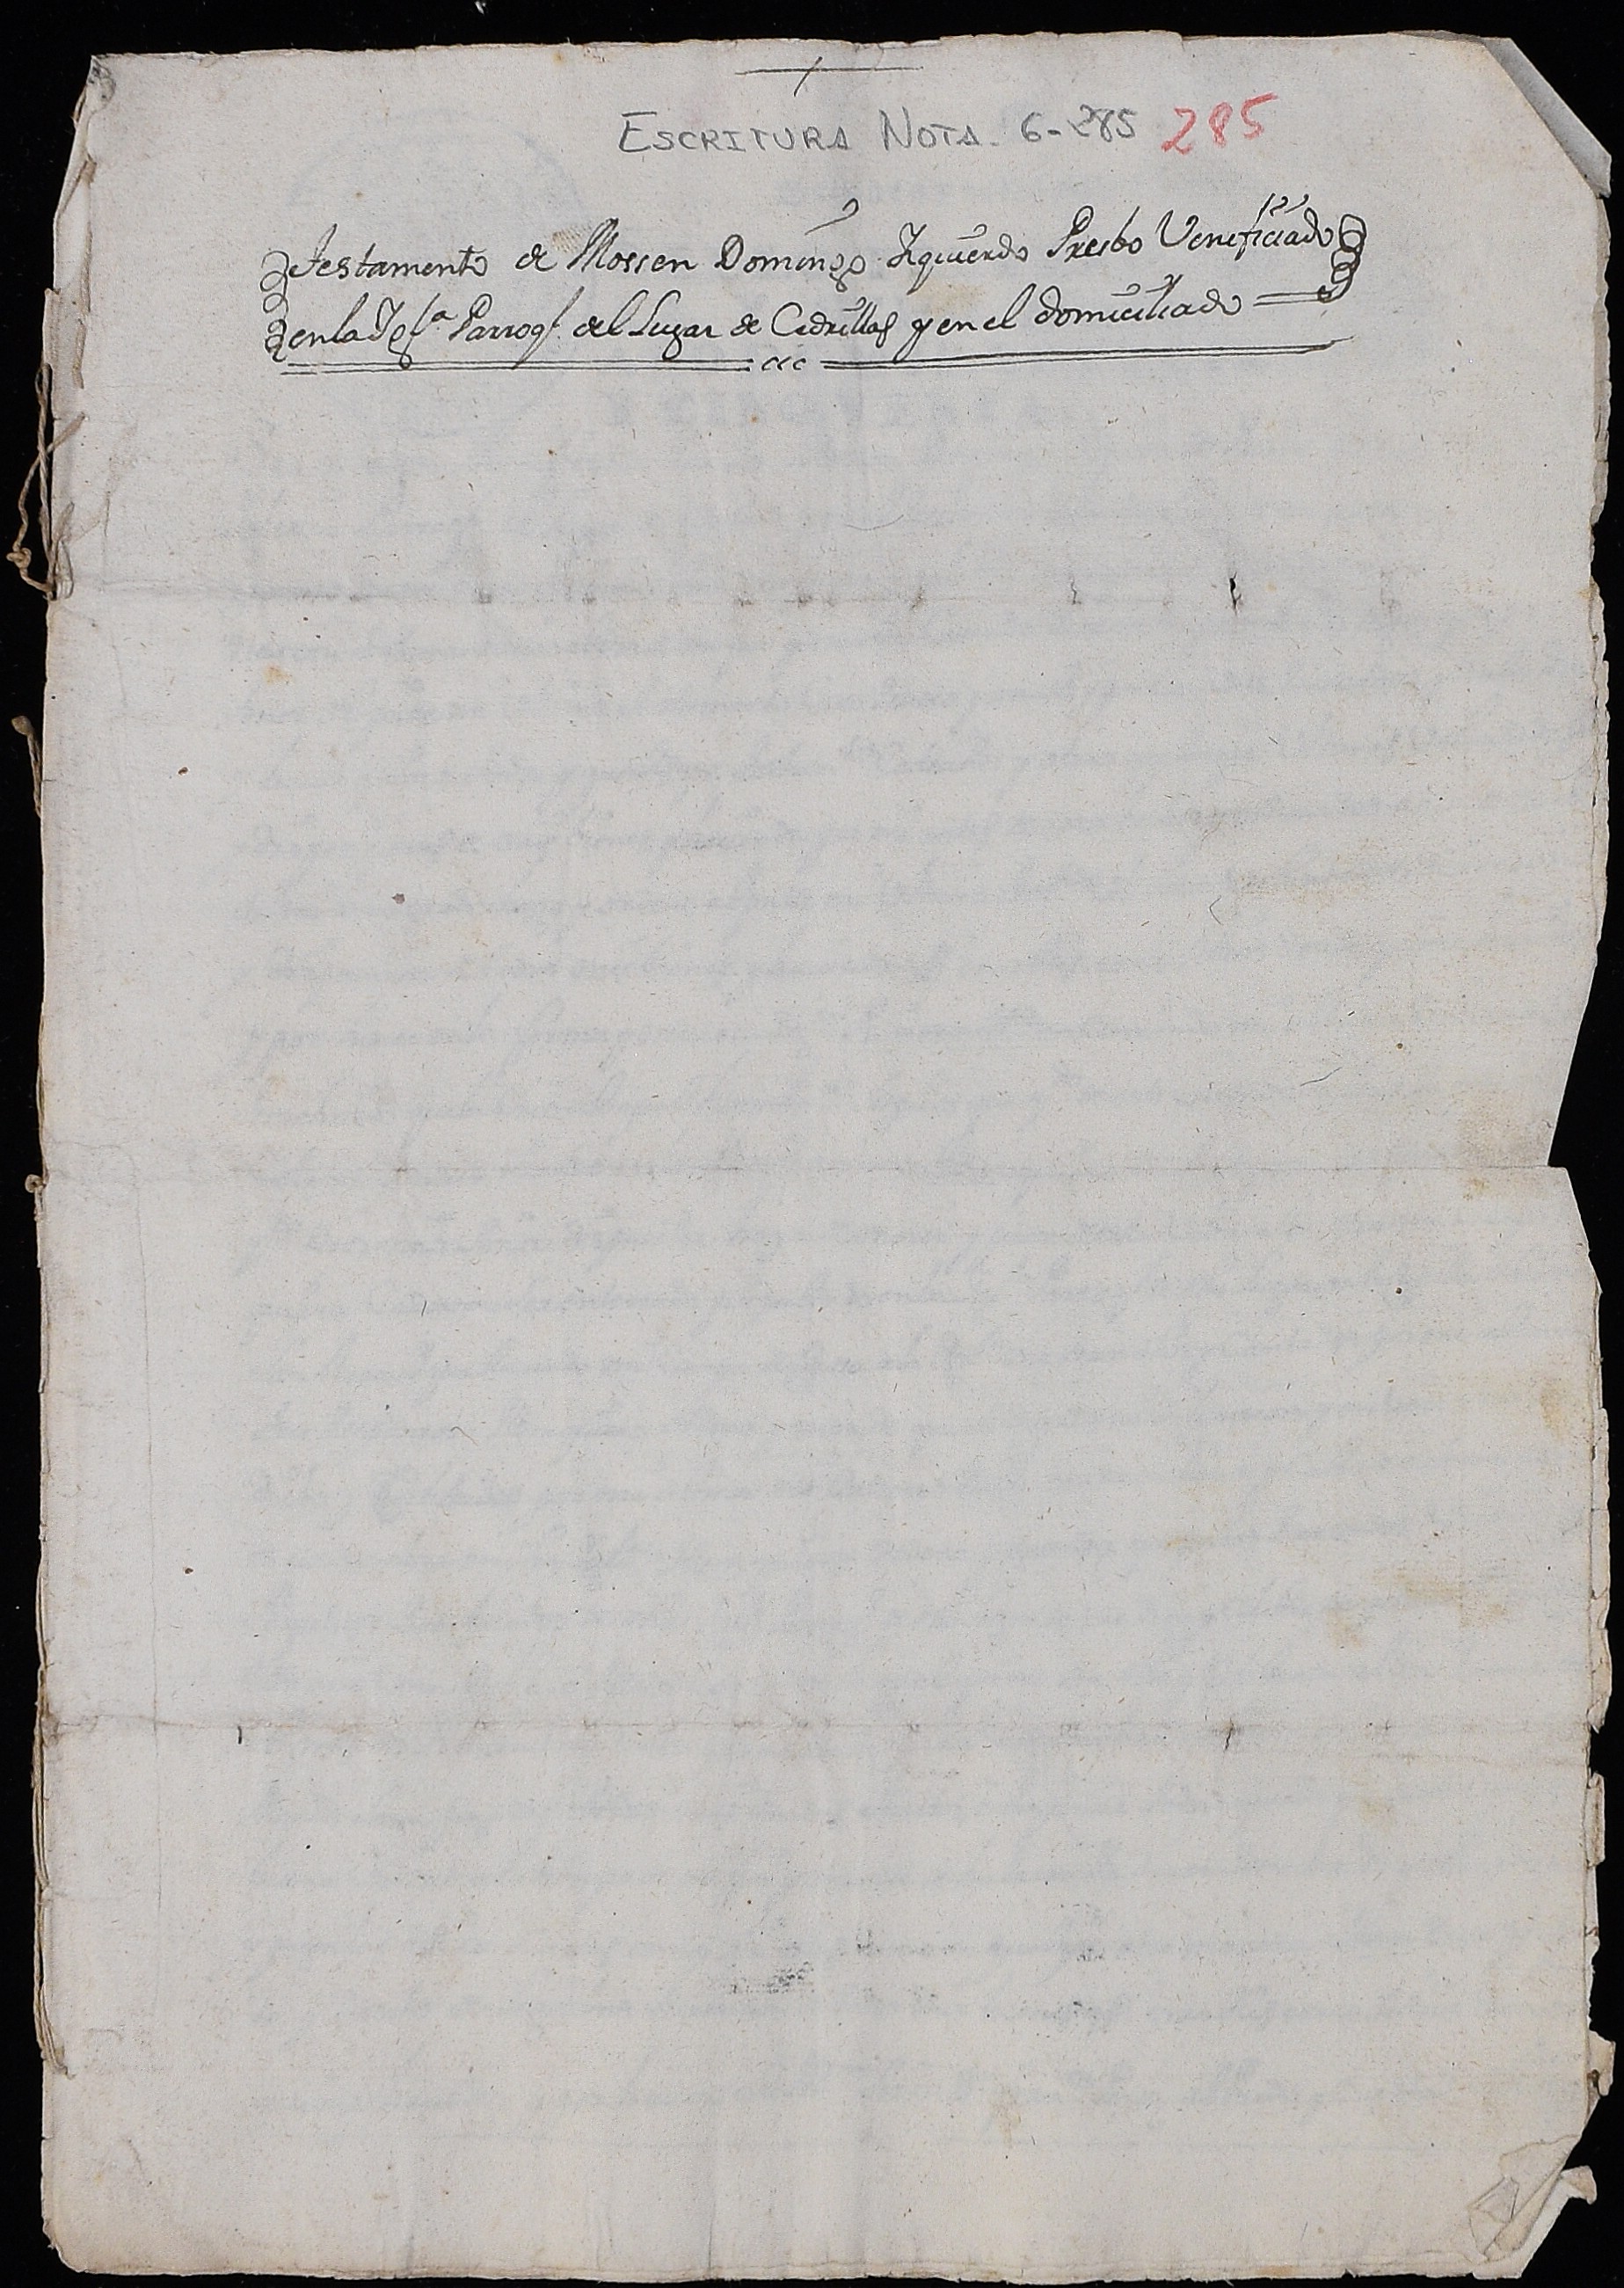 ESCRITURA NOTA. 6-285 285
Testamento de Mossen Domingo Izquierdo Presbo Veneficiado
en la Igla Parroql. del Lugar de Cedrillas y en el domiciliado